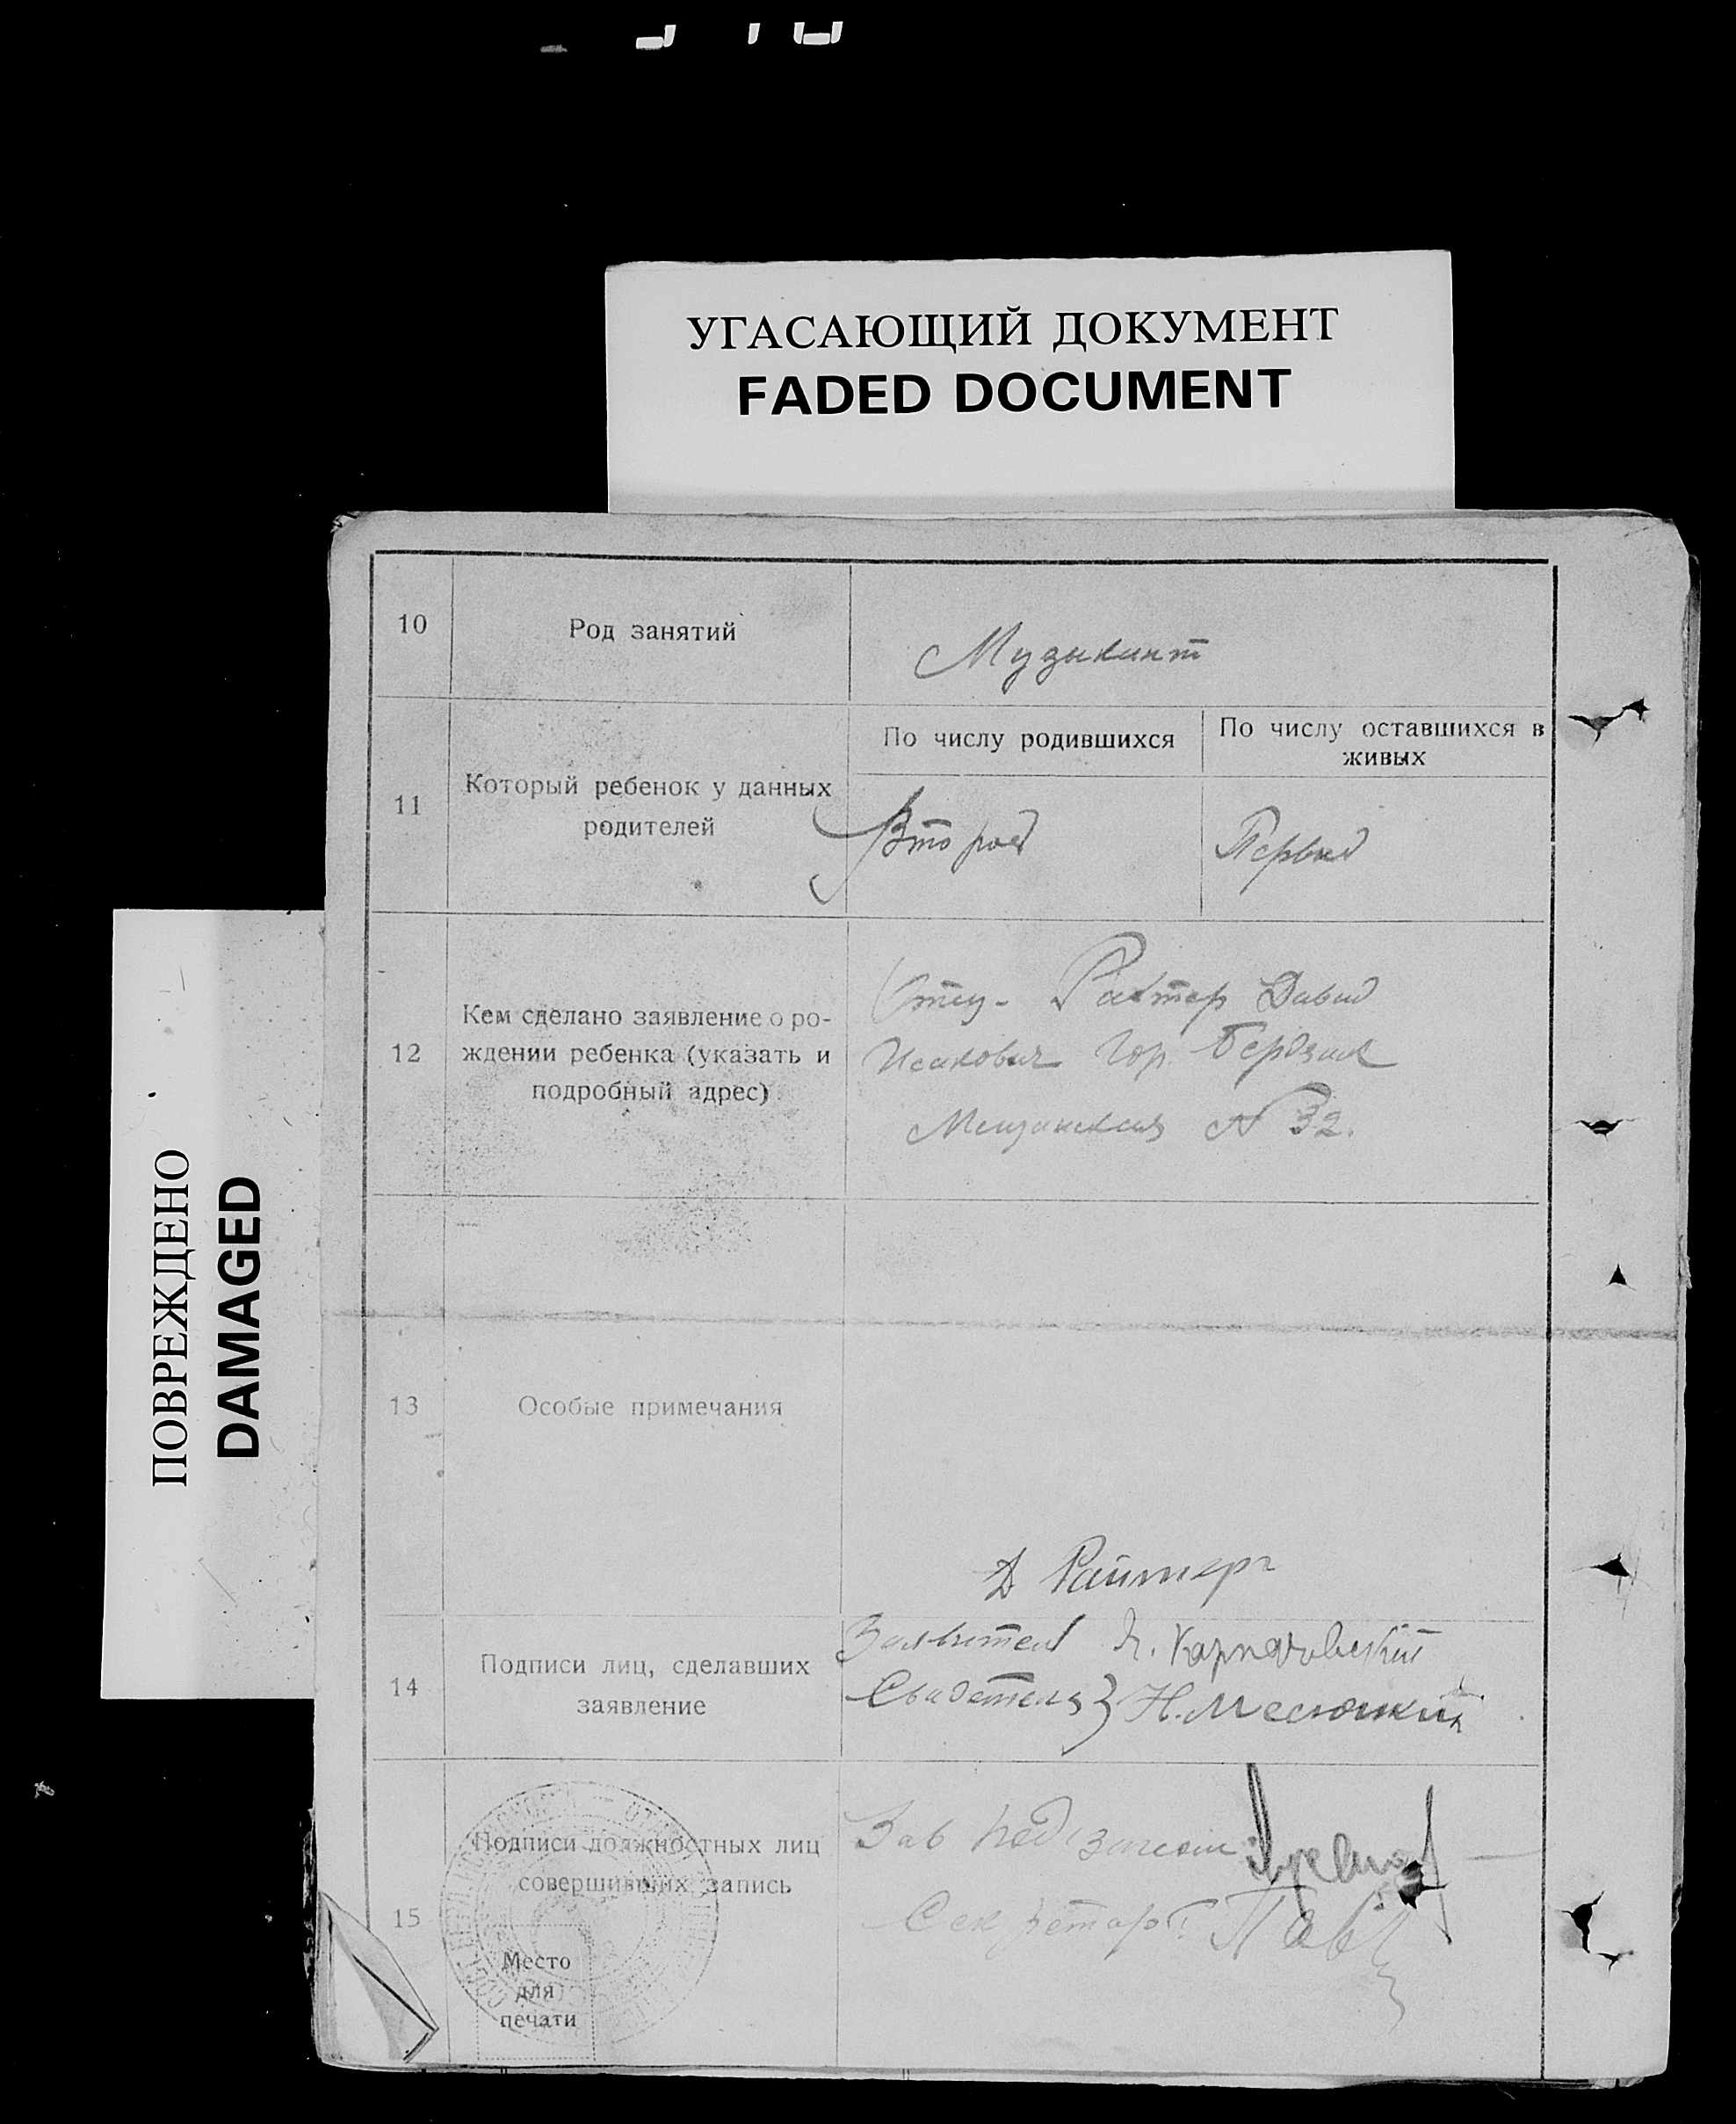 УГАСАЮЩИЙ ДОКУМЕНТ
FADED DOCUMENT
ПОВРЕЖДЕНО
DAMAGED
10
Род занятий
Музыкант
11
Который ребенок у данных
родителей
По числу родившихся
Второй
По числу оставшихся в
живых
Первый
12
Кем сделано заявление о ро-
ждении ребенка (указать и
подробный адрес)
Отец - Райтер Давид
Исакович Гор.
№ 32.
13
Особые примечания
Д Райтер
14
Подписи лиц, сделавших
заявление
Заявител
Свидетели } Н.
15
Подписи должностных лиц
совершивших запись
Место
для
печати
Зав
Секретарь